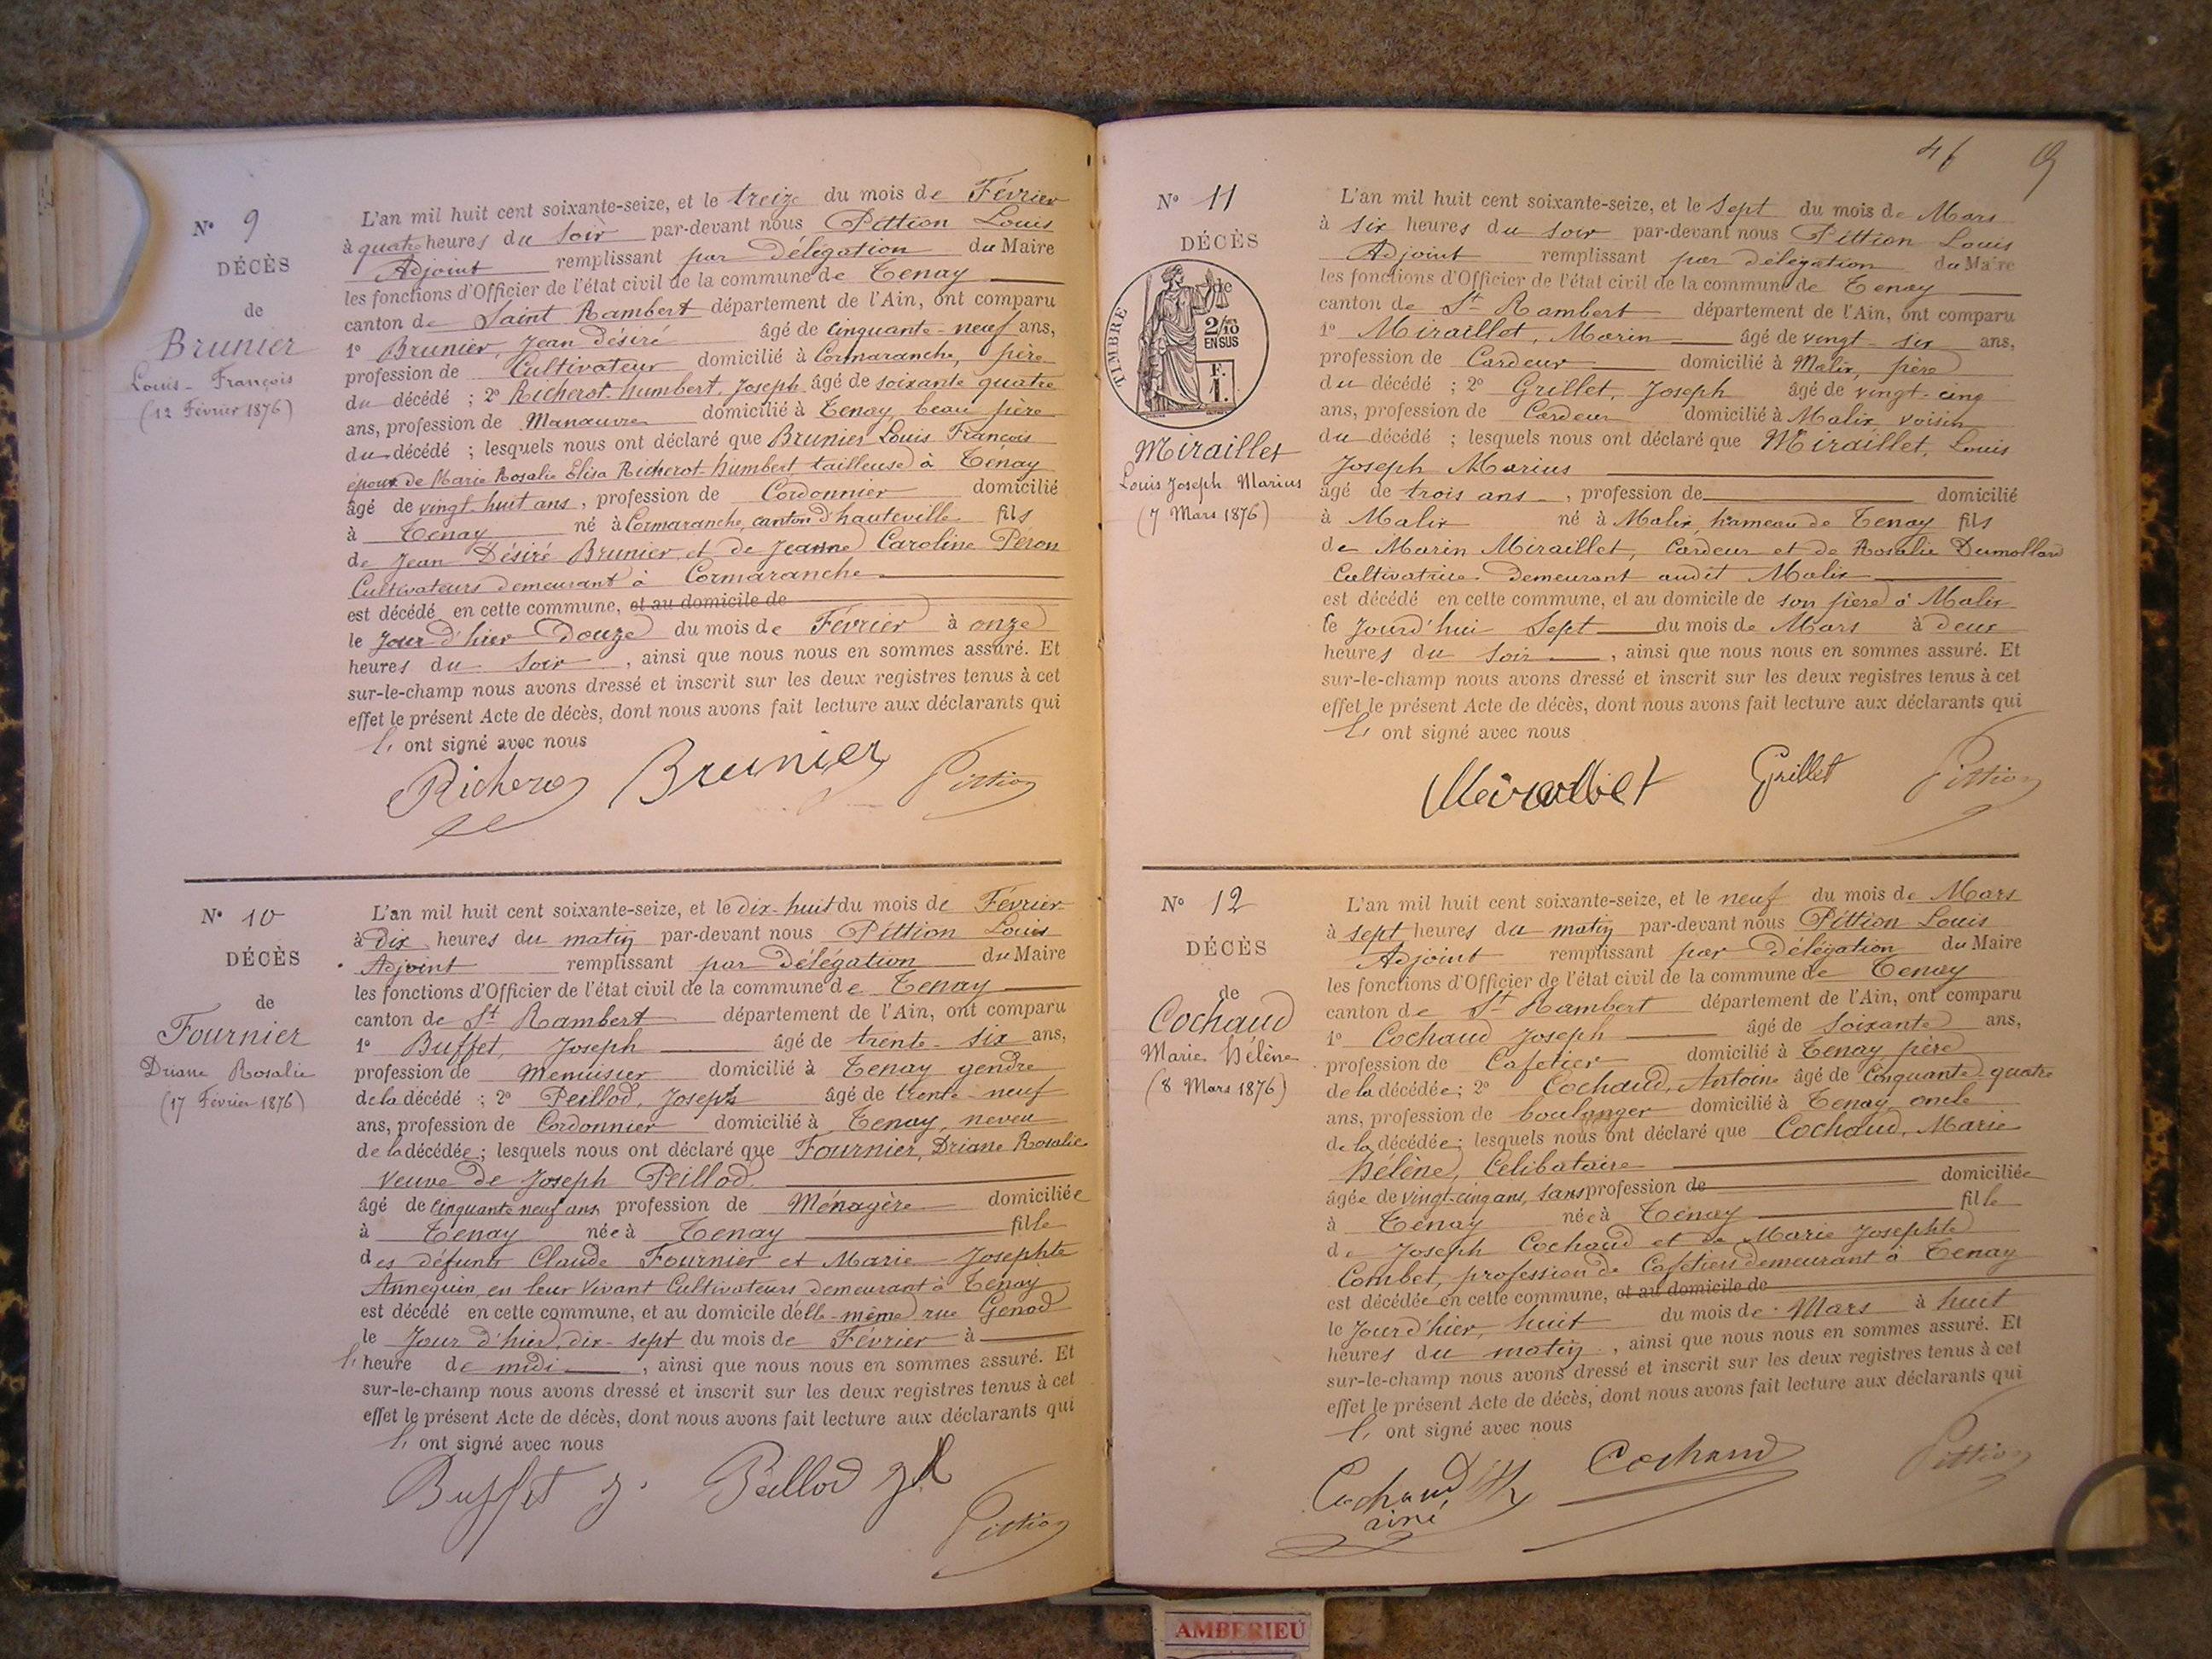 Nº 9
DÉCÈS
de
Brunier
Louis-François
(12 Février 1876)
L'an mil huit cent soixante-seize, et le treize du mois de Février
à quatre heures du soir par-devant nous Pittion Louis
Adjoint remplissant par Délégation du Maire
les fonctions d'Officier de l'état civil de la commune de Tenay
canton de Saint Rambert département de l'Ain, ont comparu
1º Brunier, Jean Désiré âgé de Cinquante-neuf ans,
profession de Cultivateur domicilié à Cormaranche, père
du décédé ; 2º Richerot-humbert, Joseph âgé de soixante quatre
ans, profession de Manœuvre domicilié à Tenay, beau père
du décédé ; lesquels nous ont déclaré que Brunier Louis François
époux de Marie Rosalie Elisa Richerot-humbert tailleuse à Tenay
âgé de vingt-huit ans, profession de Cordonnier domicilié
à Tenay né à Cormaranche, canton d'hauteville fils
de Jean Désiré Brunier, et de Jeanne Caroline Péron
Cultivateurs demeurant à Cormaranche
est décédé en cette commune, et au domicile de
le Jour d'hier Douze du mois de Février à onze
heures du soir, ainsi que nous nous en sommes assuré. Et
sur-le-champ nous avons dressé et inscrit sur les deux registres tenus à cet
effet le présent Acte de décès, dont nous avons fait lecture aux déclarants qui
l, ont signé avec nous
Richero Brunier Pittion
Nº 10
DÉCÈS
de
Fournier
Driane Rosalie
(17 Février 1876)
L'an mil huit cent soixante-seize, et le dix-huit du mois de Février
à Dix heures du matin par-devant nous Pittion Louis
Adjoint remplissant par Délégation du Maire
les fonctions d'Officier de l'état civil de la commune de Tenay
canton de St Rambert département de l'Ain, ont comparu
1º Buffet, Joseph âgé de trente-six ans,
profession de Menuisier domicilié à Tenay gendre
de la décédé ; 2º Peillod, Joseph âgé de trente-neuf
ans, profession de Cordonnier domicilié à Tenay, neveu
de la décédée ; lesquels nous ont déclaré que Fournier, Driane Rosalie
veuve de Joseph Peillod
âgé de Cinquante neuf ans, profession de Ménagère domiciliée
à Tenay née à Tenay fille
des défunts Claude Fournier et Marie Josephte
Annequin, en leur vivant Cultivateurs demeurant à Tenay
est décédé en cette commune, et au domicile d'elle-même rue Genod
le Jour d'hier, dix-sept du mois de Février à
l, heure de midi, ainsi que nous nous en sommes assuré. Et
sur-le-champ nous avons dressé et inscrit sur les deux registres tenus à cet
effet le présent Acte de décès, dont nous avons fait lecture aux déclarants qui
l, ont signé avec nous
Buffet J. Peillod Pittion
9
Nº 11
DÉCÈS
de
TIMBRE
2/10
EN SUS
F.
1.
Miraillet
Louis Joseph Marius
(7 Mars 1876)
L'an mil huit cent soixante-seize, et le sept du mois de Mars
à six heures du soir par-devant nous Pittion Louis
Adjoint remplissant par Délégation du Maire
les fonctions d'Officier de l'état civil de la commune de Tenay
canton de St Rambert département de l'Ain, ont comparu
1º Miraillet, Marin âgé de vingt-six ans,
profession de Cardeur domicilié à Malix, père
du décédé ; 2º Grillet, Joseph âgé de vingt-cinq
ans, profession de Cardeur domicilié à Malix, voisin
du décédé ; lesquels nous ont déclaré que Miraillet, Louis
Joseph Marius
âgé de trois ans, profession de domicilié
à Malix né à Malix, hameau de Tenay fils
de Marin Miraillet, Cardeur et de Rosalie Dumollard
Cultivatrice. Demeurant audit Malix
est décédé en cette commune, et au domicile de son père à Malix
le Jourd'hui Sept du mois de Mars à deux
heures du soir, ainsi que nous nous en sommes assuré. Et
sur-le-champ nous avons dressé et inscrit sur les deux registres tenus à cet
effet le présent Acte de décès, dont nous avons fait lecture aux déclarants qui
l, ont signé avec nous
Miraillet Grillet Pittion
Nº 12
DÉCÈS
de
Cochaud
Marie Hélène
(8 Mars 1876)
L'an mil huit cent soixante-seize, et le neuf du mois de Mars
à sept heures du matin par-devant nous Pittion Louis
Adjoint remplissant par Délégation du Maire
les fonctions d'Officier de l'état civil de la commune de Tenay
canton de St Rambert département de l'Ain, ont comparu
1º Cochaud Joseph âgé de soixante ans,
profession de Cafetier domicilié à Tenay, père
de la décédée ; 2º Cochaud, Antoine âgé de Cinquante-quatre
ans, profession de boulanger domicilié à Tenay, oncle
de la décédée ; lesquels nous ont déclaré que Cochaud, Marie
hélène, Célibataire
âgée de vingt-cinq ans, sans profession de domiciliée
à Tenay née à Tenay fille
de Joseph Cochaud et de Marie Josephte
Combet, profession de Cafetiers demeurant à Tenay
est décédée en cette commune, et au domicile de
le Jour d'hier, huit du mois de Mars à huit
heures du matin, ainsi que nous nous en sommes assuré. Et
sur-le-champ nous avons dressé et inscrit sur les deux registres tenus à cet
effet le présent Acte de décès, dont nous avons fait lecture aux déclarants qui
l, ont signé avec nous
Cochaud Cochaud Pittion
ainé
AMBERIEU